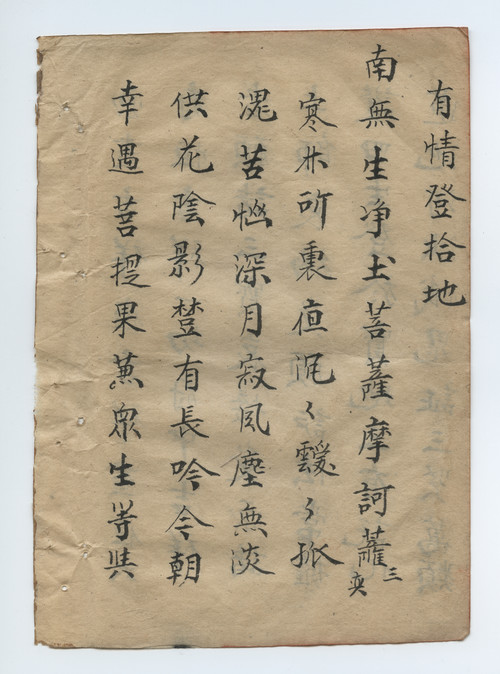 有情登拾地
南無生净土菩薩摩訶薩三
寒林所裏夜沉々靉々孤
魂苦惱深月寂風塵無淡
供花陰影有長吟今朝
幸遇菩提果衆生等共